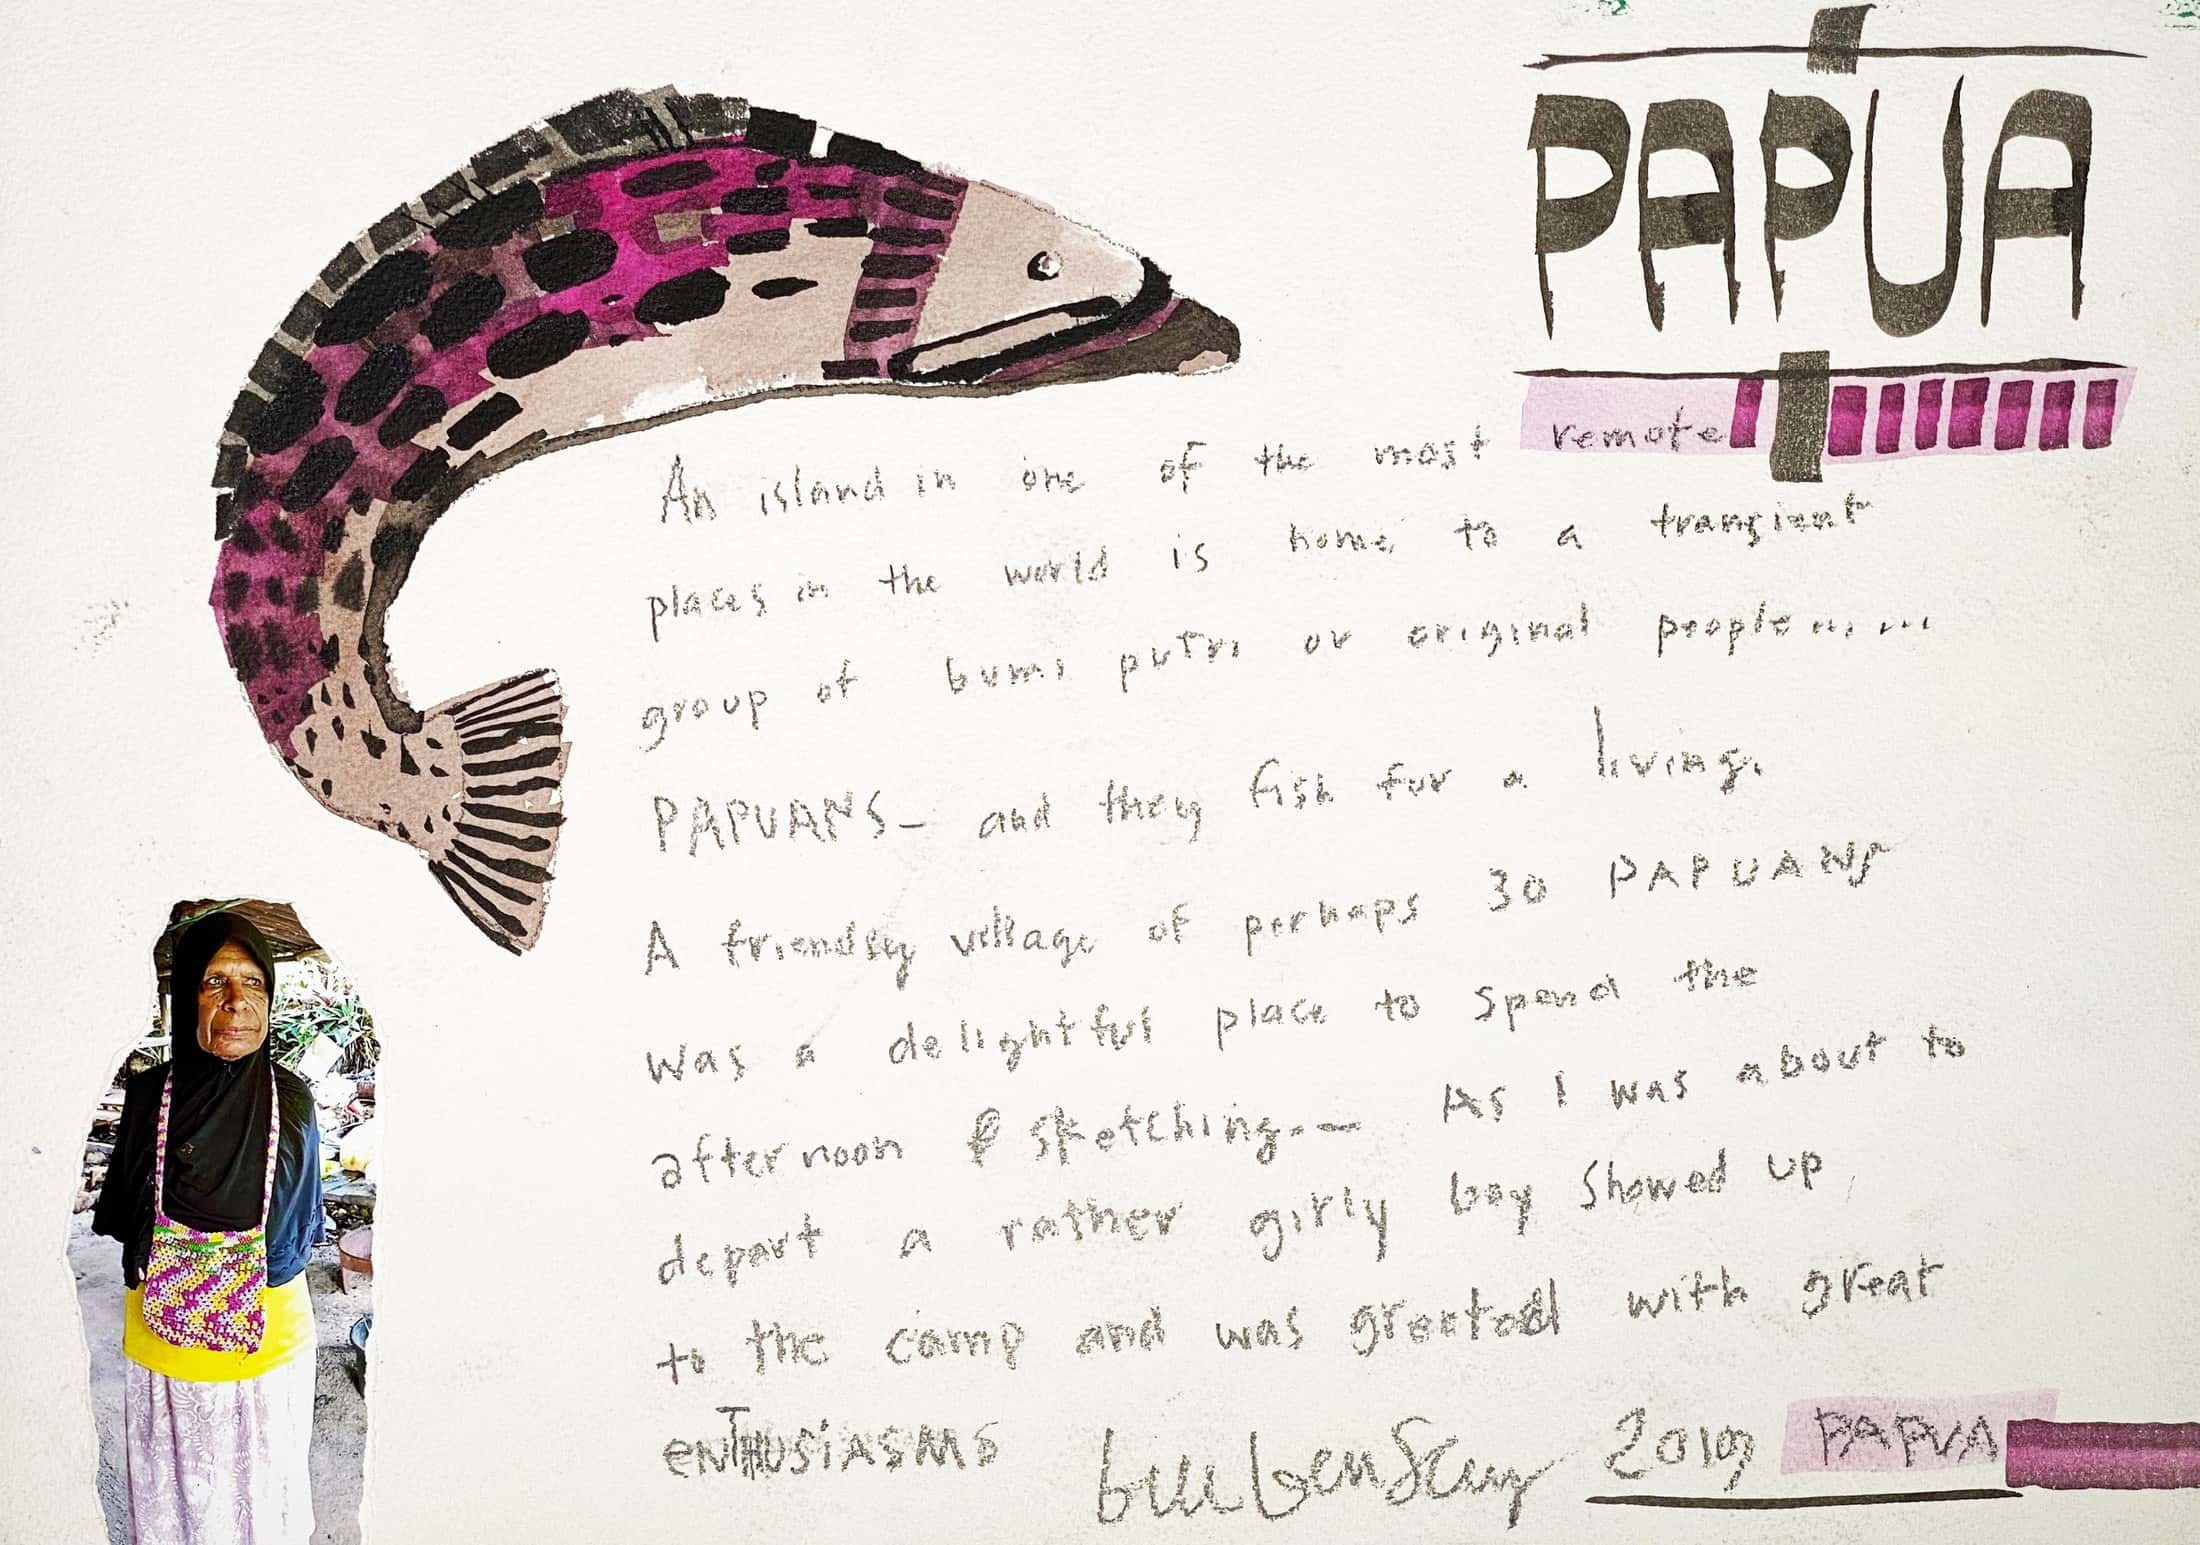 PAPUA
An island in one of the most remote
places in the world is home to a transient
group of bumi putri or original people.......
PAPUANS - and they fish for a living.
A friendly village of perhaps 30 PAPUANS
was a delightful place to spend the
afternoon & sketching.-- As I was about to
depart a rather girly boy showed up
to the camp and was greeted with great
enTHUSiASMS
2019 PAPUA